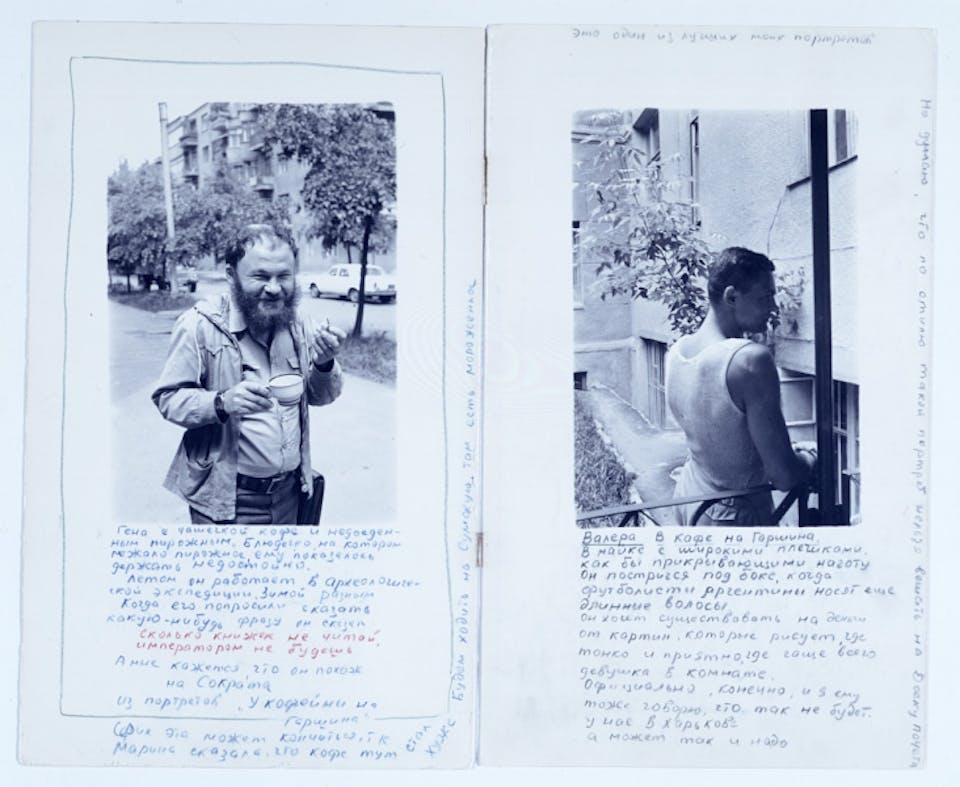 Гена с чашечкой кофе и недоеден-
ным пирожным. Блюдечко на котором
лежало пирожное, ему показалось
держать недостойно.
Летом он работает в археологиче-
ской экспедиции, зимой разным
Когда его попросили сказать
какую-нибудь фразу он сказал
сколько книжек не читай,
императором не будешь
А мне кажется что он похож
на Сократа
из портретов "У кофейни на
Гаршина"
Серия эта может кончиться, т.к
Марина сказала, что кофе тут стал
хуже. Будем ходить на Сумскую, там есть мороженное
Это один из лучших моих портретов
Но думаю, что по стилю такой портрет нельзя вешать на Доску Почета
Валера В кафе на Гаршина,
В майке с широкими плечиками,
как бы прикрывающими наготу
Он постригся под бокс, когда
футболисты Аргентины носят еще
длинные волосы.
он хочет существовать на деньги
от картин, которые рисует, где
тонко и приятно, где чаще всего
девушка в комнате.
Официально, конечно, и я ему
тоже говорю, что так не будет.
у нас в Харькове
а может так и надо